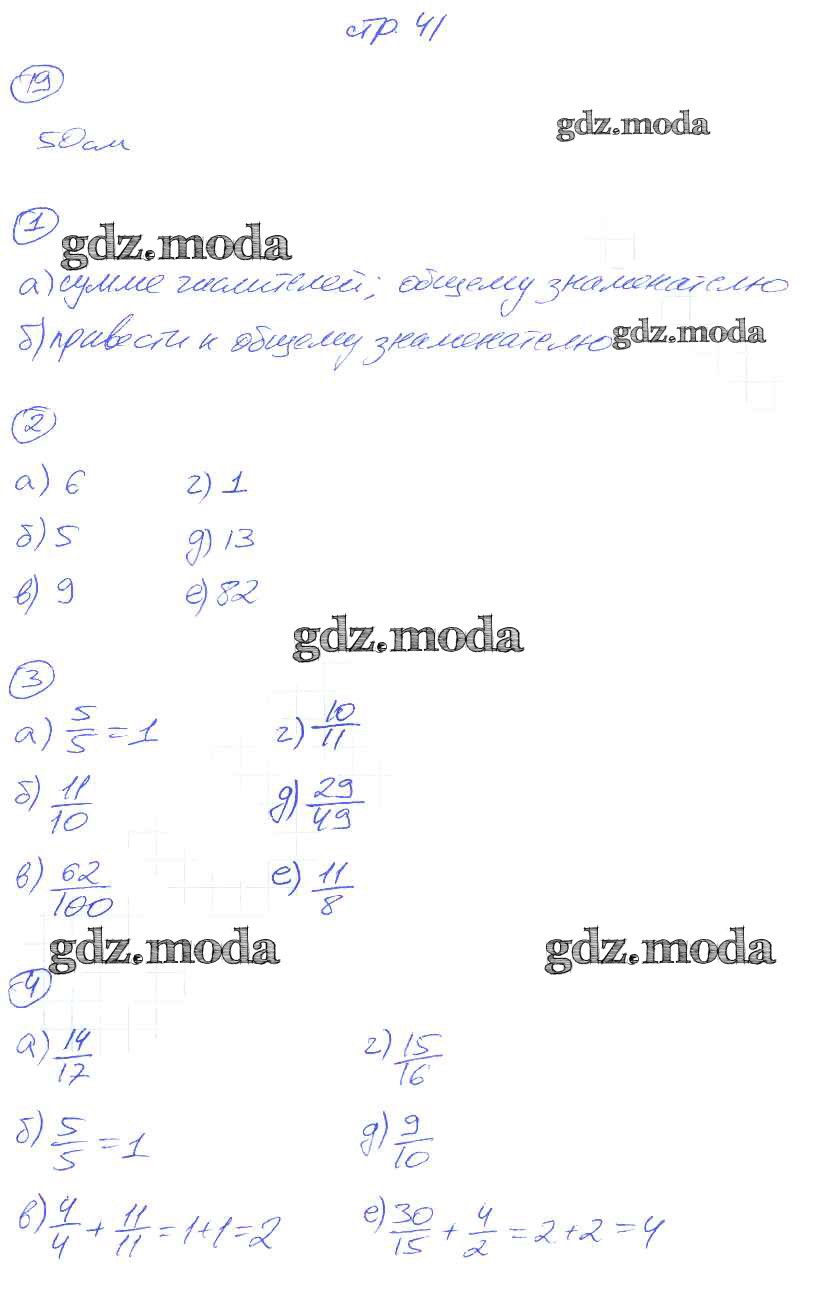 стр. 41
19
50см
gdz.moda
1
gdz.moda
а) сумме числителей; общему знаменателю
б) привести к общему знаменателю gdz.moda
2
а) 6 г) 1
б) 5 д) 13
в) 9 е) 82
gdz.moda
3
а) 5/5 = 1 г) 10/11
б) 11/10 д) 29/49
в) 62/100 е) 11/8
gdz.moda gdz.moda
4
а) 14/17 г) 15/16
б) 5/5 = 1 д) 9/10
в) 4/4 + 11/11 = 1+1=2 е) 30/15 + 4/2 = 2+2=4